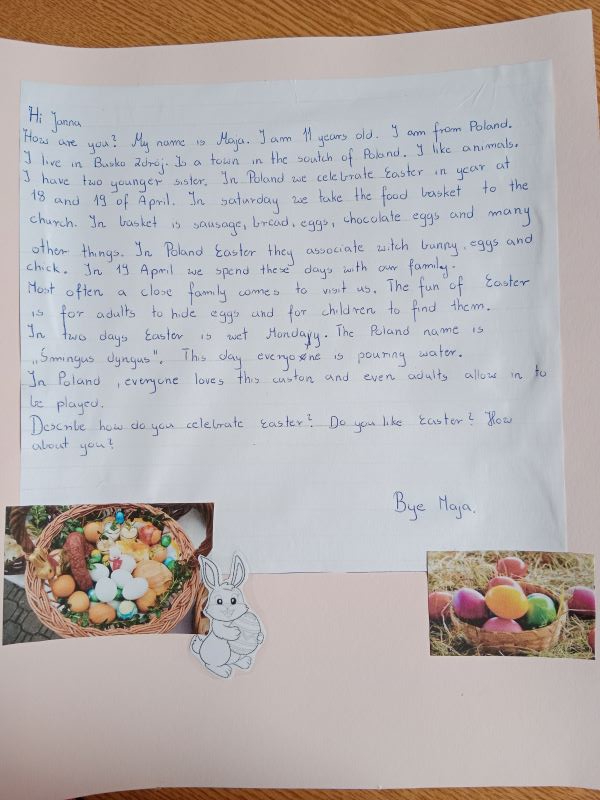 Hi Janna
How are you? My name is Maja. I am 11 years old. I am from Poland.
I live in Busko Zdrój. Is a town in the soutch of Poland. I like animals.
I have two younger sister. In Poland we celebrate Easter in year at
18 and 19 of April. In saturday we take the food basket to the
church. In basket is sausage, bread, eggs, chocolate eggs and many
other things. In Poland Easter they associate witch bunny, eggs and
chick. In 19 April we spend these days with our family.
Most often a close family comes to visit us. The fun of Easter
is for adults to hide eggs and for children to find them.
In two days Easter is wet Monday. The Poland name is
„Śmingus dyngus". This day everyone is pouring water.
In Poland, everyone loves this custon and even adults allow in to
be played.
Describe how do you celebrate Easter? Do you like Easter? How
about you?
Bye Maja.